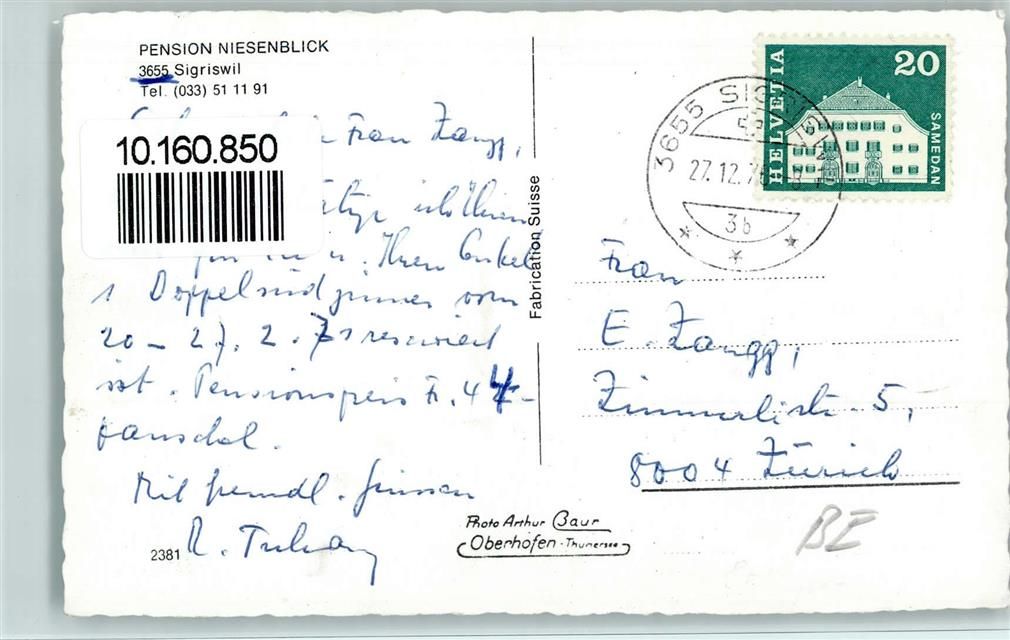 PENSION NIESENBLICK
3655 Sigriswil
Tel. (033) 51 11 91
Frau Zangg,
10.160.850
ich Ihnen
Ihren Enkel
1 Doppelsüdzimmer vom
20 - 27. 2. 75 reserviert
ist. Pensionspreis Fr. 44.-
pauschal.
Mit freundl. Grüssen
2381 R.
Fabrication Suisse
Photo Arthur Baur
Oberhofen - Thunersee
HELVETIA
20
SAMEDAN
3655 SIGRISWIL
27.12.7
3b
Frau
E. Zangg,
Zimmerlistr. 5,
8004 Zürich
BE